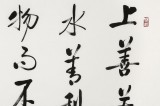 上善若
水善利
物而不